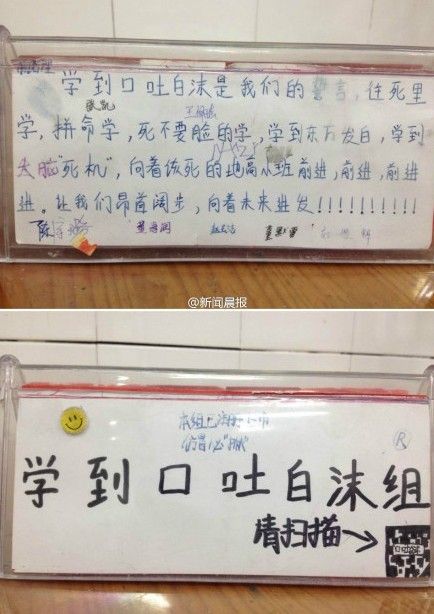 学到口吐白沫是我们的誓言,往死里
学,拼命学,死不要脸的学,学到东方发白,学到
大脑"死机",向着该死的地高小班前进,前进,前进
进。让我们昂首阔步,向着未来进发!!!!!!!!!!
@新闻晨报
本组已注册
仿冒必
®
学到口吐白沫组
请扫描→